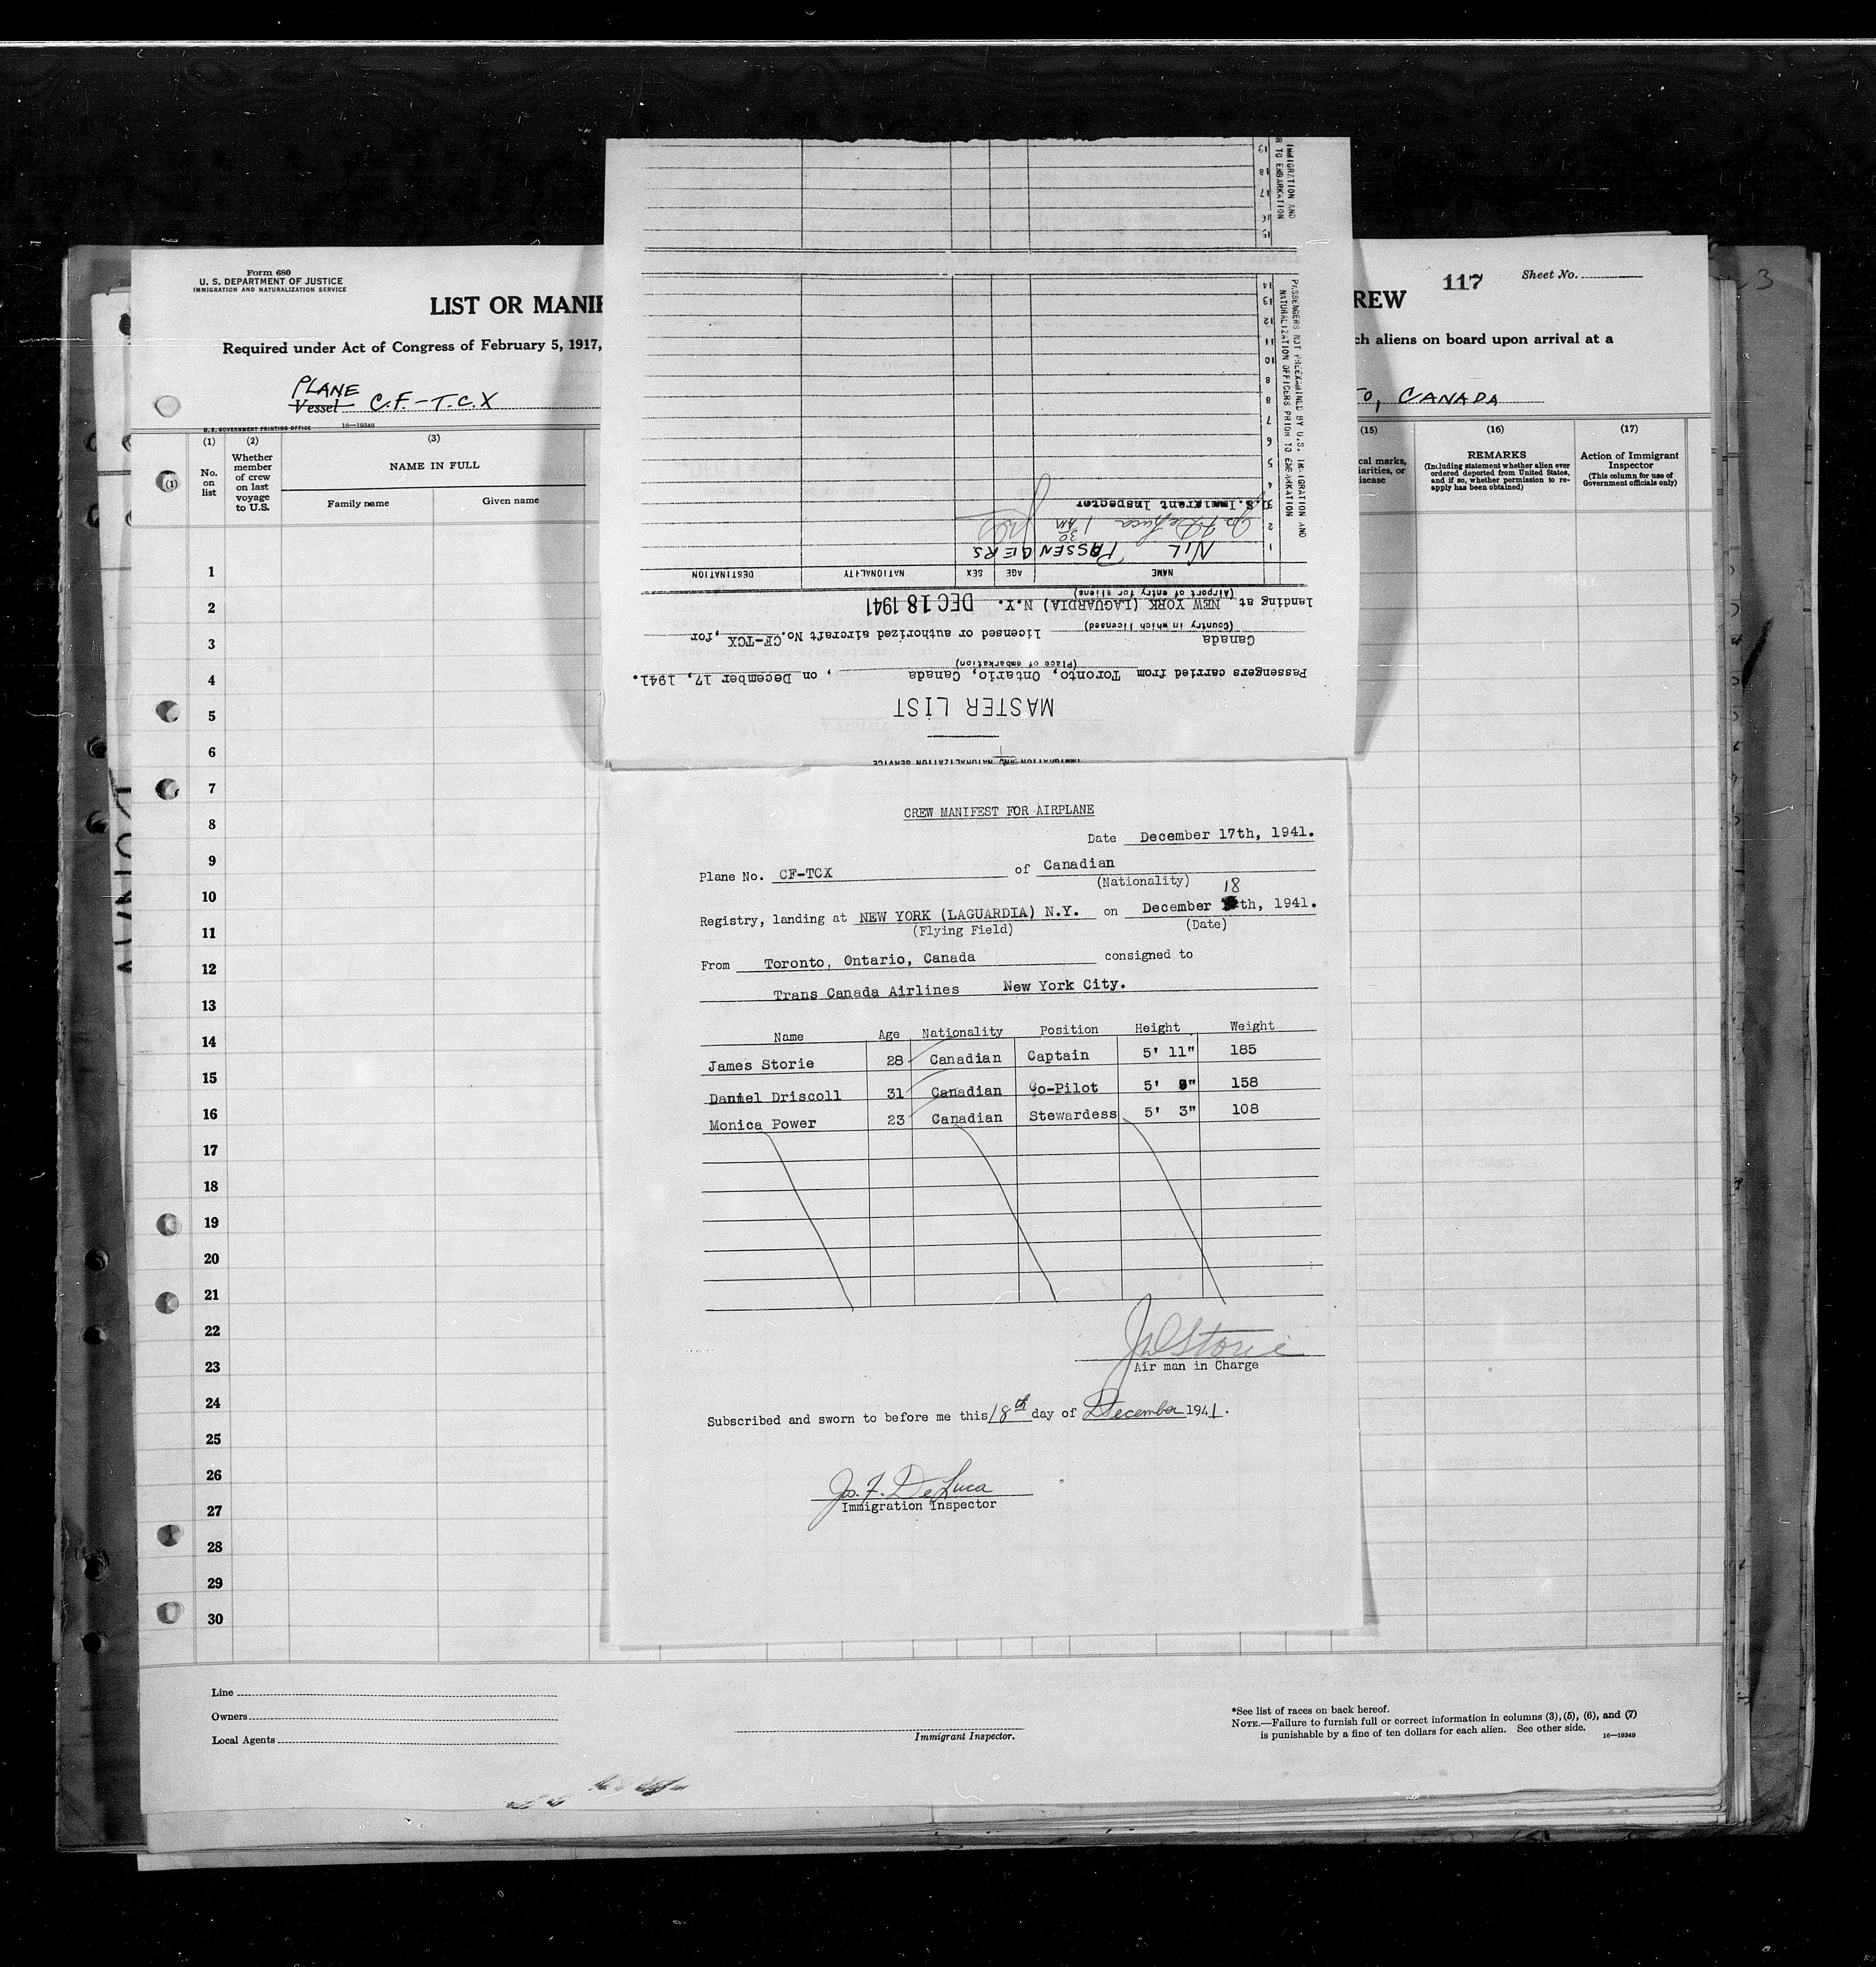 Form 680
U. S. DEPARTMENT OF JUSTICE
IMMIGRATION AND NATURALIZATION SERVICE
117
Sheet No.
LIST OR MANIF
REW
Required under Act of Congress of February 5, 1917,
ch aliens on board upon arrival at a
PLANE
Vessel C.F.-T.C.X
TO, CANADA
U. S. GOVERNMENT PRINTING OFFICE 16—19349
(1) (2) (3) (15) (16) (17)
No. on list
Whether member of crew on last voyage to U.S.
NAME IN FULL
Family name Given name
cal marks, iarities, or isease
REMARKS
(Including statement whether alien ever ordered deported from United States, and if so, whether permission to reapply has been obtained)
Action of Immigrant Inspector
(This column for use of Government officials only)
(1)
1
2
3
4
5
6
7
8
9
10
11
12
13
14
15
16
17
18
19
20
21
22
23
24
25
26
27
28
29
30
Line
Owners
Local Agents
Immigrant Inspector.
*See list of races on back hereof.
NOTE.—Failure to furnish full or correct information in columns (3), (5), (6), and (7)
is punishable by a fine of ten dollars for each alien. See other side. 16—19349
IMMIGRATION AND NATURALIZATION SERVICE
MASTER LIST
Passengers carried from Toronto, Ontario, Canada, on December 17, 1941.
(Place of embarkation)
Canada licensed or authorized aircraft No. CF-TCX, for
(Country in which licensed)
landing at NEW YORK (LAGUARDIA) N.Y. DEC 18 1941
(Airport of entry for aliens)
NAME AGE SEX NATIONALITY DESTINATION
1 NIL PASSENGERS
2 Jos F. DeLuca 1 30 AM
3 U.S. Immigrant Inspector
4
5
6
7
8
8
10
11
12
13
14
15
16
17
18
19
PASSENGERS NOT PREEXAMINED BY U.S. IMMIGRATION AND
NATURALIZATION OFFICERS PRIOR TO EMBARKATION
IMMIGRATION AND
R TO EMBARKATION
CREW MANIFEST FOR AIRPLANE
Date December 17th, 1941.
Plane No. CF-TCX of Canadian
(Nationality)
18
Registry, landing at NEW YORK (LAGUARDIA) N.Y. on December th, 1941.
(Flying Field) (Date)
From Toronto, Ontario, Canada consigned to
Trans Canada Airlines New York City.
Name Age Nationality Position Height Weight
James Storie 28 Canadian Captain 5' 11" 185
Daniel Driscoll 31 Canadian Co-Pilot 5' 158
Monica Power 23 Canadian Stewardess 5' 3" 108
Storie
Air man in Charge
Subscribed and sworn to before me this 18th day of December 1941.
Jos. F. DeLuca
Immigration Inspector
3